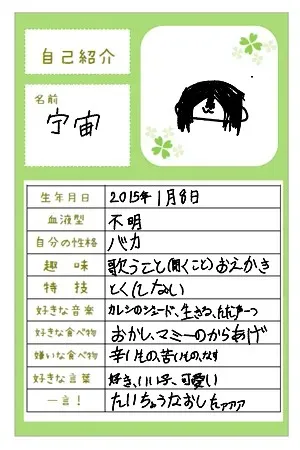 自己紹介
名前
宇宙
生年月日 2015年1月8日
血液型 不明
自分の性格 バカ
趣味 歌うこと(聞くこと)おえかき
特技 とくにない
好きな音楽 カレシのジュード、生きる、
好きな食べ物 おかし、マミーのからあげ
嫌いな食べ物 辛いもの、苦いもの、なす
好きな言葉 好き、いい子、可愛い
一言! たいちょうなおしたァァァ